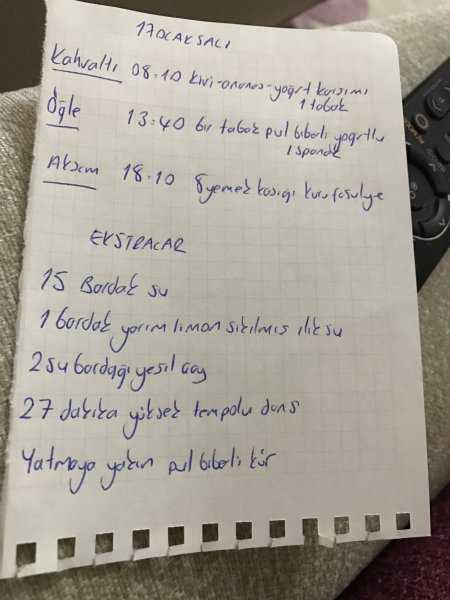 17 OCAK SALI
Kahvaltı 08:10 kivi-ananas-yoğrt karışımı
1 tabak
Öğle 13:40 bir tabak pul biberli yoğurtlu
ıspanak
Akşam 18:10 8 yemek kaşığı kuru fasulye
EKSTRALAR
15 Bardak su
1 bardak yarım limon sıkılmış ılık su
2 su bardağı yeşil çay
27 dakika yüksek tempolu dans
Yatmaya yakın pul biberli kür